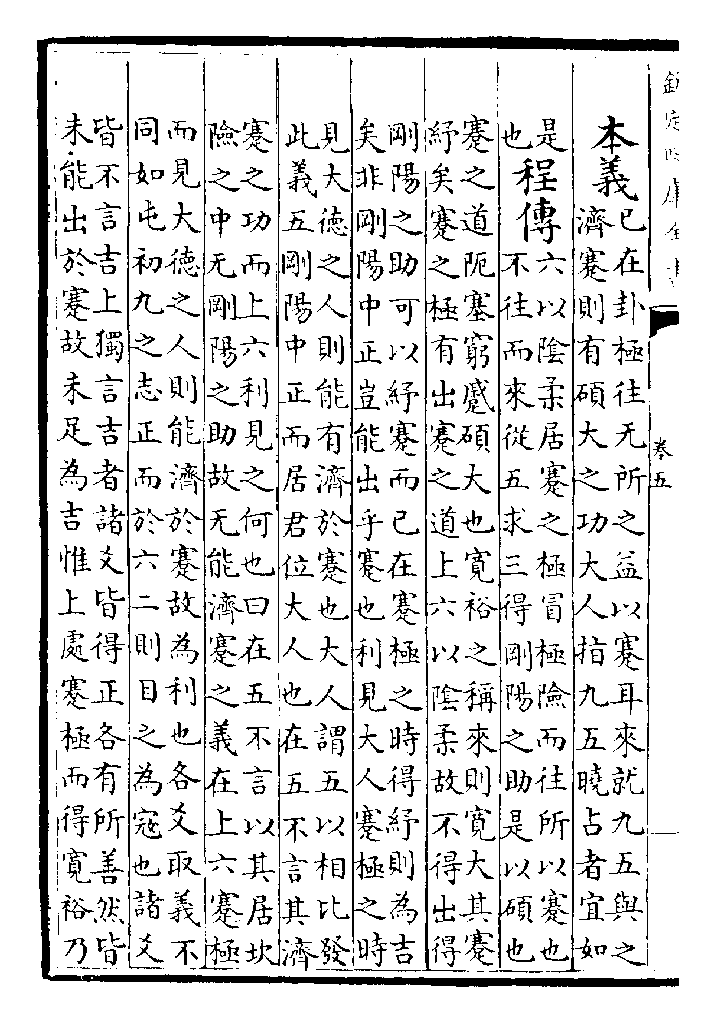 欽定四庫全書
卷五
本義已在卦極往无所之益以蹇耳來就九五與之
濟蹇則有碩大之功大人指九五曉占者宜如
是
也
程傳六以陰柔居蹇之極冒極險而往所以蹇也
不往而來從五求三得剛陽之助是以碩也
蹇之道阨塞窮蹙碩大也寛裕之稱來則寛大其蹇
紓矣蹇之極有出蹇之道上六以陰柔故不得出得
剛陽之助可以紓蹇而已在蹇極之時得紓則為吉
矣非剛陽中正豈能出乎蹇也利見大人蹇極之時
見大德之人則能有濟於蹇也大人謂五以相比發
此義五剛陽中正而居君位大人也在五不言其濟
蹇之功而上六利見之何也曰在五不言以其居坎
險之中无剛陽之助故无能濟蹇之義在上六蹇極
而見大德之人則能濟於蹇故為利也各爻取義不
同如屯初九之志正而於六二則目之為寇也諸爻
皆不言吉上獨言吉者諸爻皆得正各有所善然皆
未能出於蹇故未足為吉惟上處蹇極而得寛裕乃